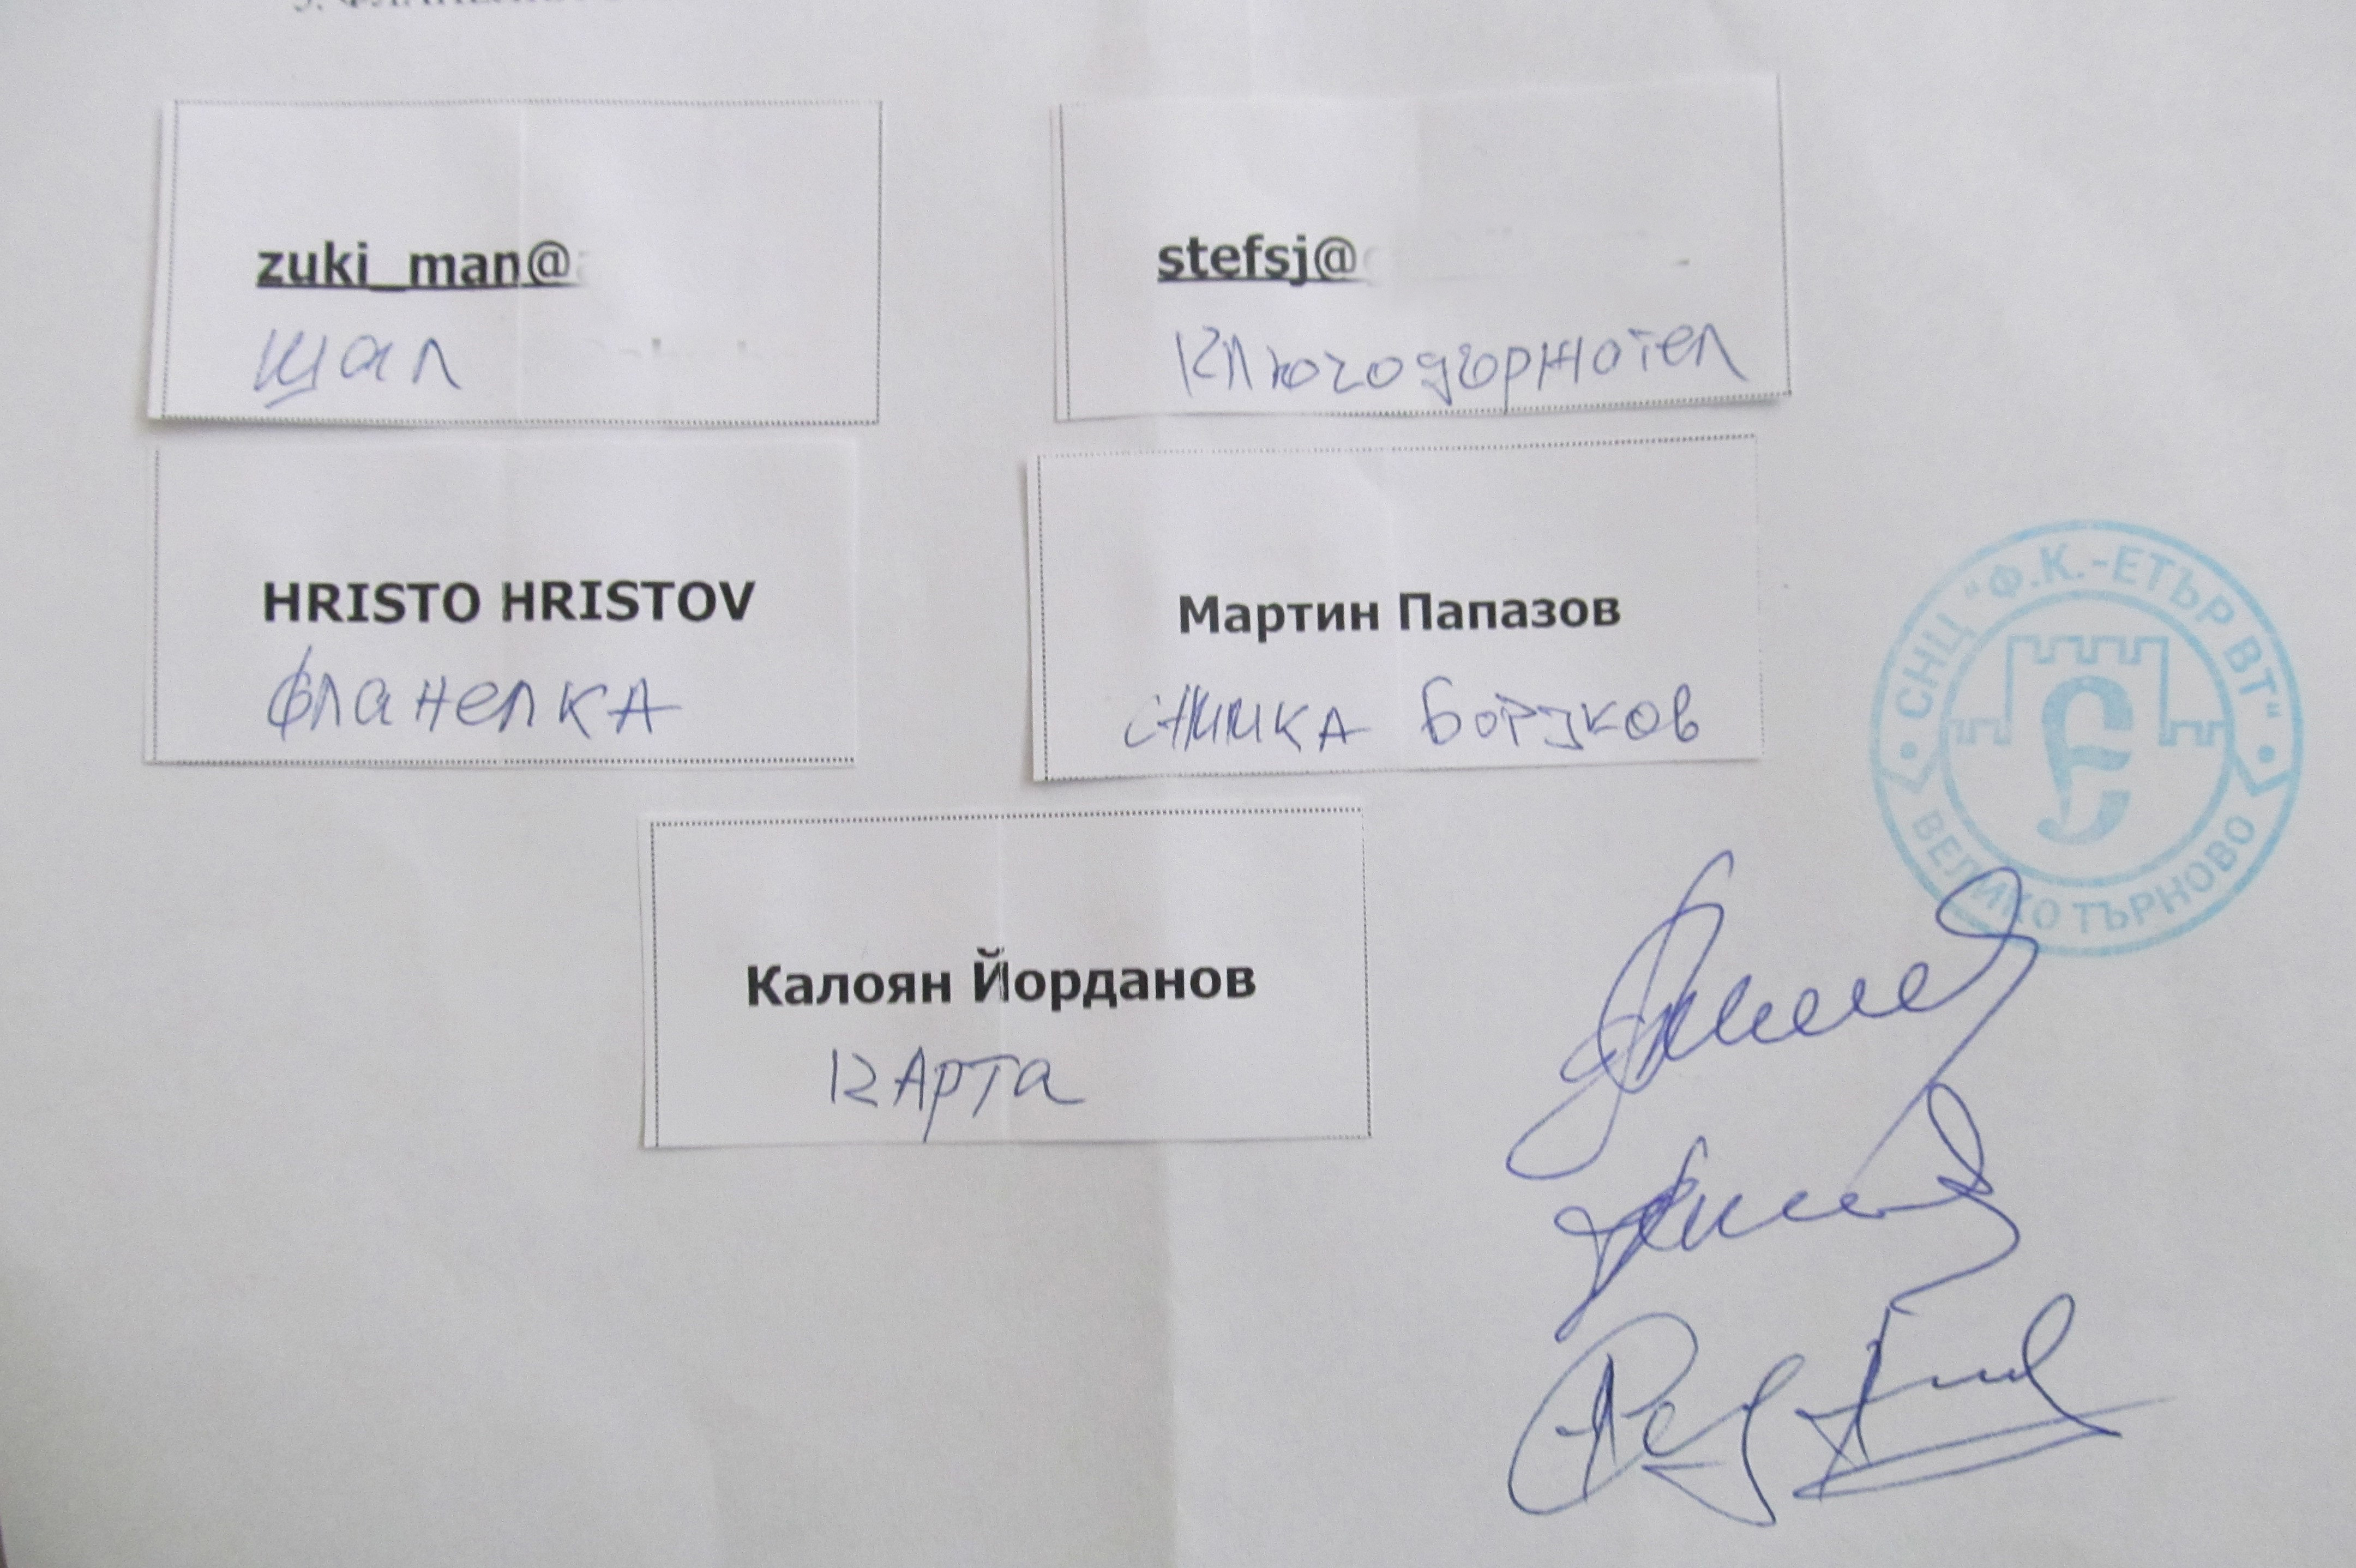 zuki_man@
шал
stefsj@
Ключодържател
HRISTO HRISTOV
фланелка
Мартин Папазов
снимка Боруков
Калоян Йорданов
карта
СНЦ "Ф.К.-ЕТЪР ВТ"
ВЕЛИКО ТЪРНОВО